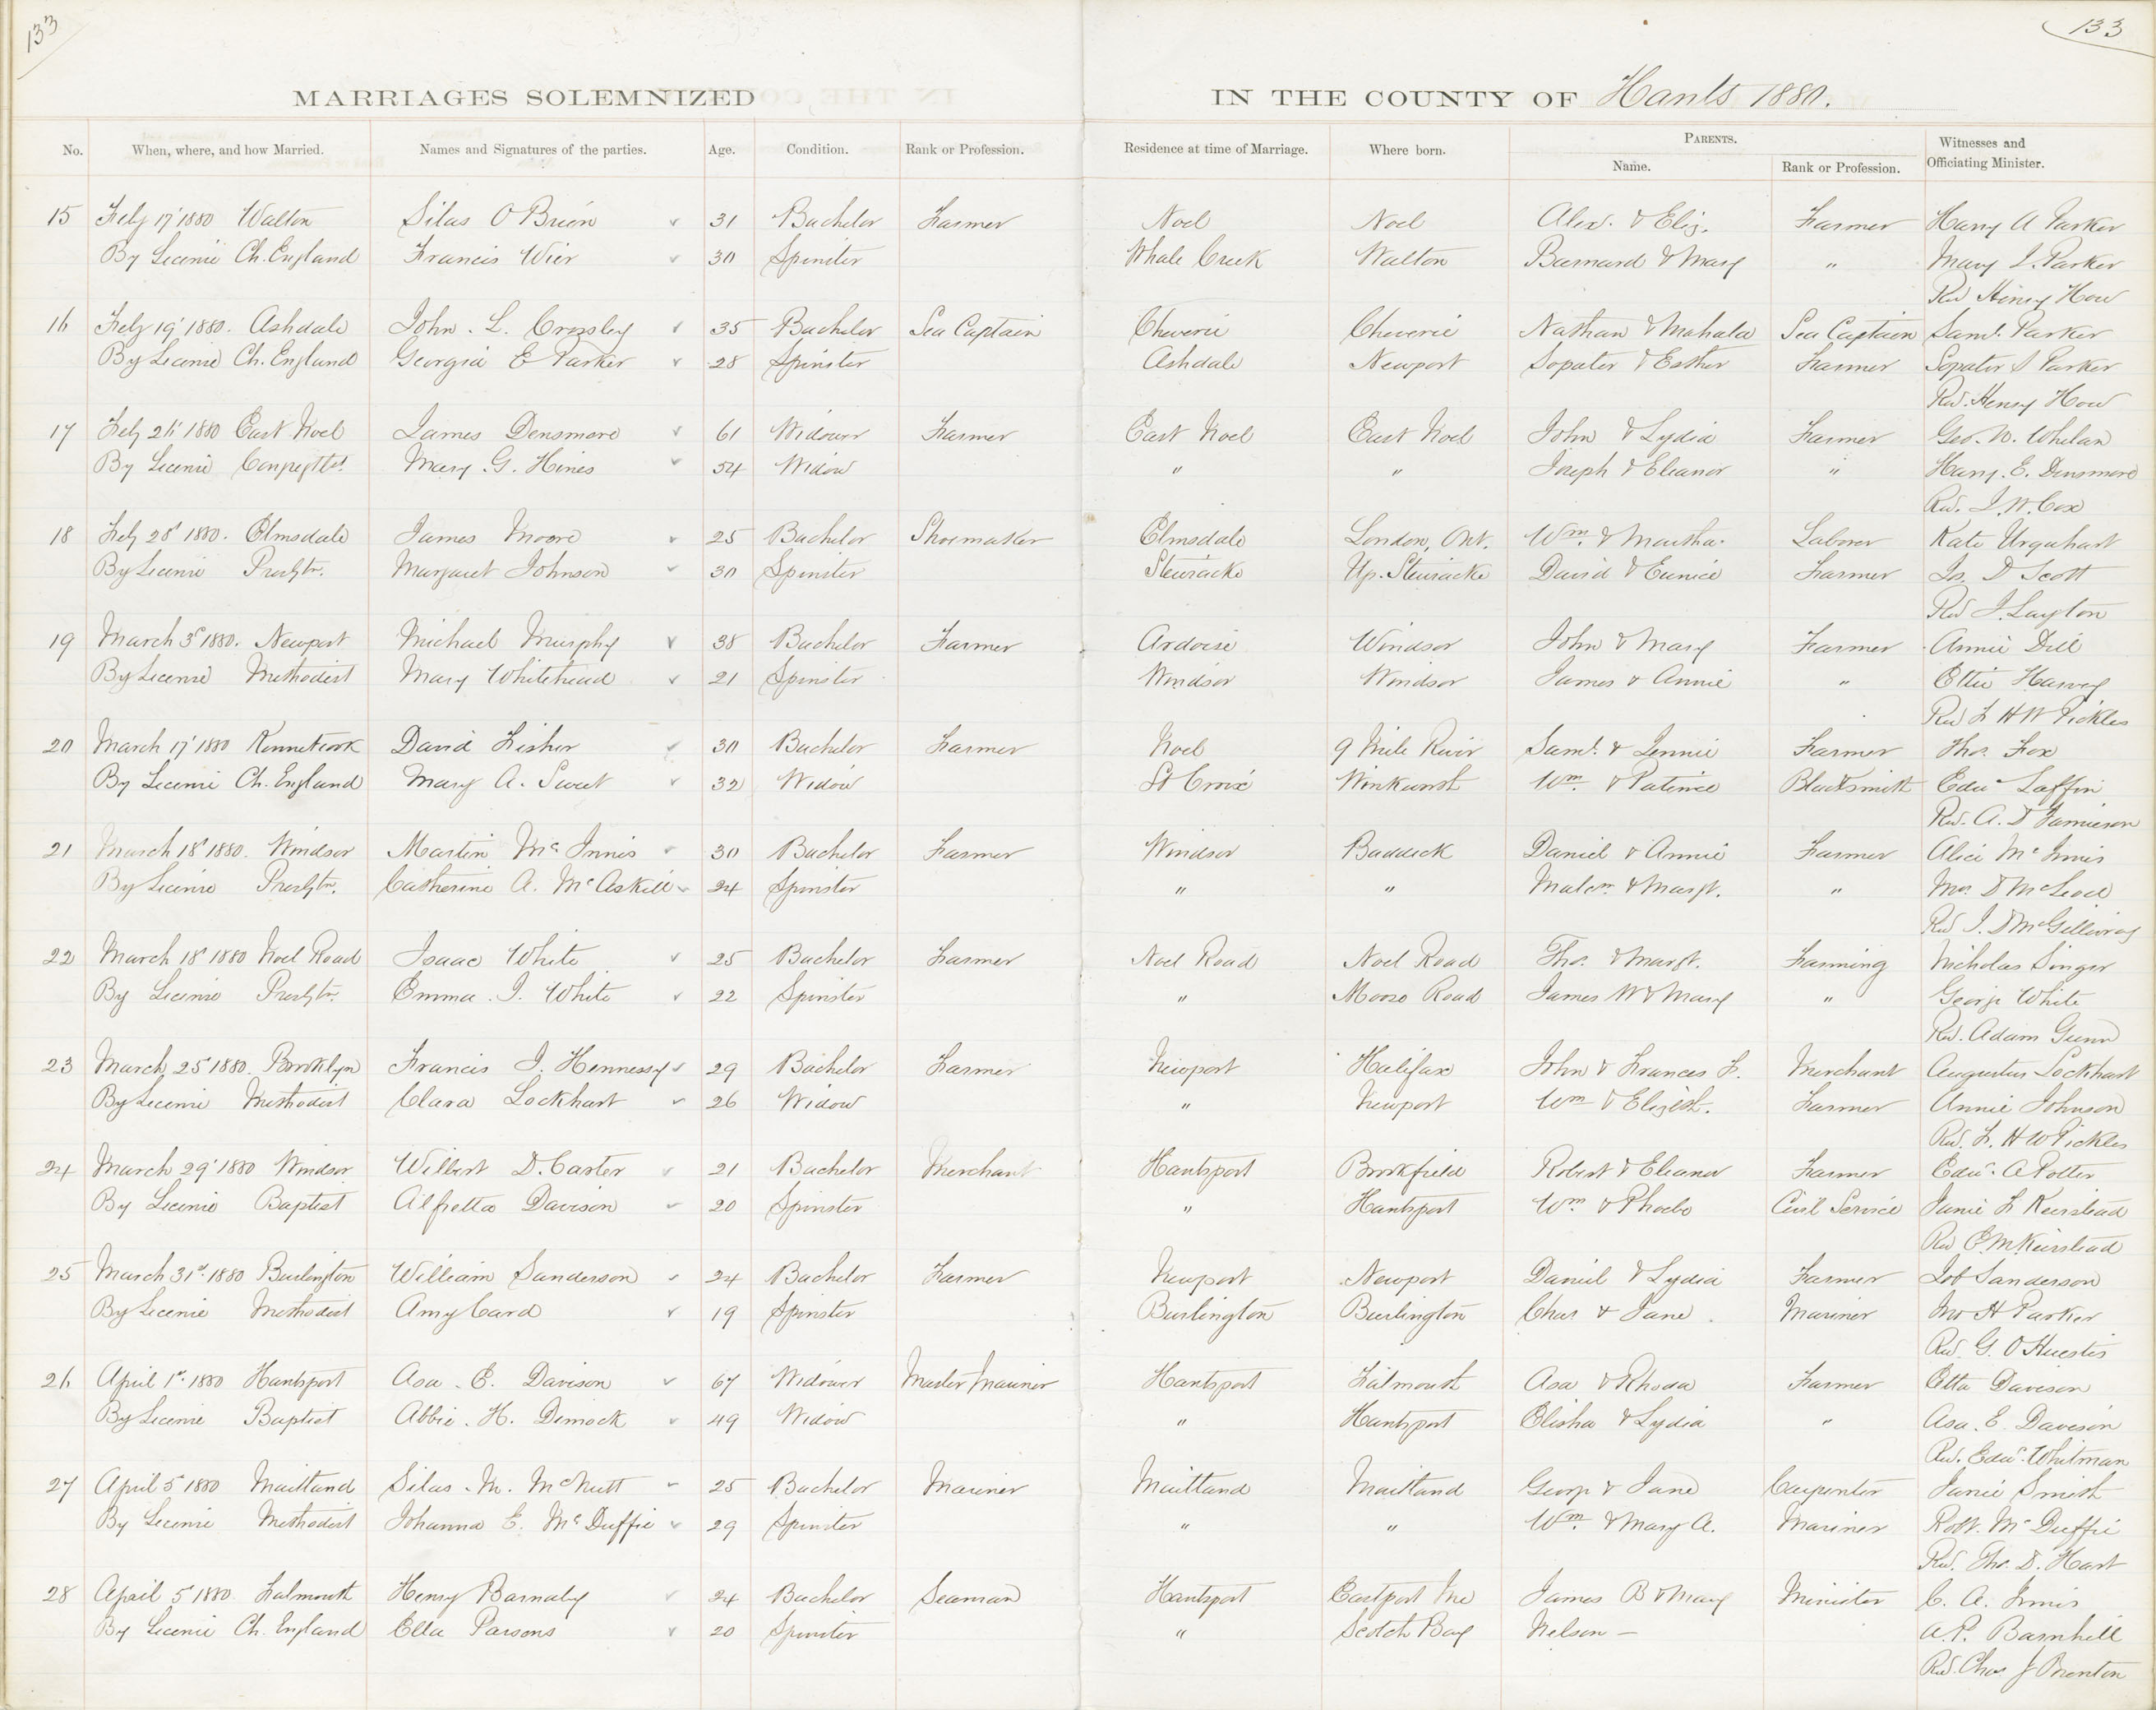 133
133
MARRIAGES SOLEMNIZED IN THE COUNTY OF Hants 1880.
No. When, where, and how Married. Names and Signatures of the parties. Age. Condition. Rank or Profession. Residence at time of Marriage. Where born. PARENTS. Name. Rank or Profession. Witnesses and Officiating Minister.
15 Feby 17' 1880 Walton Silas O'Brien 31 Bachelor Farmer Noel Noel Alex. & Eliz. Farmer Harry A Parker
By License Ch. England Francis Wier 30 Spinster Whale Creek Walton Barnard & Mary " Mary L. Parker
Rev Henry How
16 Feby 19' 1880. Ashdale John. L. Crossley 35 Bachelor Sea Captain Cheverie Cheverie Nathan & Mahala Sea Captain Saml. Parker
By License Ch. England Georgia E Parker 28 Spinster Ashdale Newport Sopater & Esther Farmer Sopater S Parker
Rev. Henry How
17 Feby 26' 1880 East Noel James Densmore 61 Widower Farmer East Noel East Noel John & Lydia Farmer Geo. N. Whelan
By License Congregtl. Mary. G. Hines 54 Widow " " Joseph & Eleanor " Harry. E. Densmore
Rev. J. W. Cox
18 Feby 28' 1880. Elmsdale James Moore 25 Bachelor Shoemaker Elmsdale London, Ont. Wm. & Martha. Laborer Kate Urquhart
By License Presbytn. Margaret Johnson 30 Spinster Stewiacke Up. Stewiacke David & Eunice Farmer Js. D Scott
Rev J. Layton
19 March 3d 1880. Newport Michael Murphy 38 Bachelor Farmer Ardoise Windsor John & Mary Farmer Annie Dill
By License Methodist Mary Whitehead 21 Spinster Windsor Windsor James & Annie " Ettie Harvey
Rev F H W Pickles
20 March 17' 1880 Kennetcook David Fisher 30 Bachelor Farmer Noel 9 Mile River Saml. & Jennie Farmer Thos. Fox
By License Ch. England Mary A. Sweet 32 Widow St Croix Winkworth Wm. & Patience Blacksmith Edw Laffin
Rev. A. D Jamieson
21 March 18' 1880. Windsor Martin Mc Innis 30 Bachelor Farmer Windsor Baddeck Daniel & Annie Farmer Alice Mc Innis
By License Presbytn. Catherine A. McAskill 24 Spinster " " Malcm. & Margt. " Mrs. D McLeod
Rev J. D McGillivray
22 March 18' 1880 Noel Road Isaac White 25 Bachelor Farmer Noel Road Noel Road Thos. & Margt. Farming Nicholas Singer
By License Presbytn. Emma. J. White 22 Spinster " Moose Road James W & Mary " George White
Rev. Adam Gunn
23 March 25' 1880. Brooklyn Francis J. Hennessy 29 Bachelor Farmer Newport Halifax John & Frances F. Merchant Augustus Lockhart
By License Methodist Clara Lockhart 26 Widow " Newport Wm & Elizbth. Farmer Annie Johnson
Rev. F. H W Pickles
24 March 29' 1880 Windsor Wilbert D. Carter 21 Bachelor Merchant Hantsport Brookfield Robert & Eleanor Farmer Edw. A Potter
By License Baptist Alfretta Davison 20 Spinster " Hantsport Wm. & Phoebe Civil Service Janie F Keirstead
Rev E. M Keirstead
25 March 31st 1880 Burlington William Sanderson 24 Bachelor Farmer Newport Newport Daniel & Lydia Farmer Job Sanderson
By License Methodist Amy Card 19 Spinster Burlington Burlington Chas & Jane Mariner Jno H Parker
Rev. G. O Huestis
26 April 1st 1880 Hantsport Asa. E. Davison 67 Widower Master Mariner Hantsport Falmouth Asa & Rhoda Farmer Etta Davison
By License Baptist Abbie. H. Dimock 49 Widow " Hantsport Elisha & Lydia " Asa. E. Davison
Rev. Edw. Whitman
27 April 5' 1880 Maitland Silas. M. McNutt 25 Bachelor Mariner Maitland Maitland George & Jane Carpenter Janie Smith
By License Methodist Johanna E. McDuffie 29 Spinster " " Wm. & Mary A. Mariner Robt. McDuffie
Rev. Thos. D. Hart
28 April 5' 1880 Falmouth Henry Barnaby 24 Bachelor Seaman Hantsport Eastport Me James B & Mary Minister C. A. Innis
By License Ch. England Ella Parsons 20 Spinster " Scotch Bay Nelson — A. P. Barnhill
Rev. Chas J Brenton